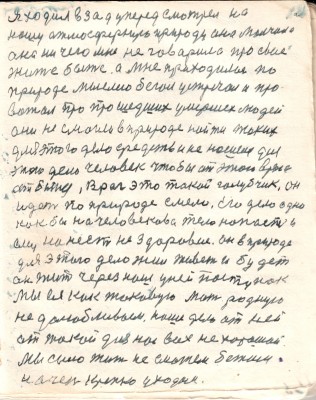 Я ходил взад уперед смотрел на
нашу атмосферную природу она молчала
она ничего мне не говорила про свое
жите быте. а мне приходилос по
природе мыслию бегом устречат и про
вожат про прошедших умерших людей
они не смогли в природе найти таких
для этого дело средств и не нашли для
этого дело человек чтобы от этого врага
отбился, Враг это такой голубчик, он
идет по природе смело, его дело одно
как бы на человекова тело напасть и
ему нанести не здоровие. он в природе
для этого дело жил живет и будет
он жит через наш у ней поступок
мы ея как таковую мат родную
не долюбливаем, наше дело от ней
от такой для нас всех не хорошой.
Мы само жит не сможем бежим.
на чеп крепко уходим.